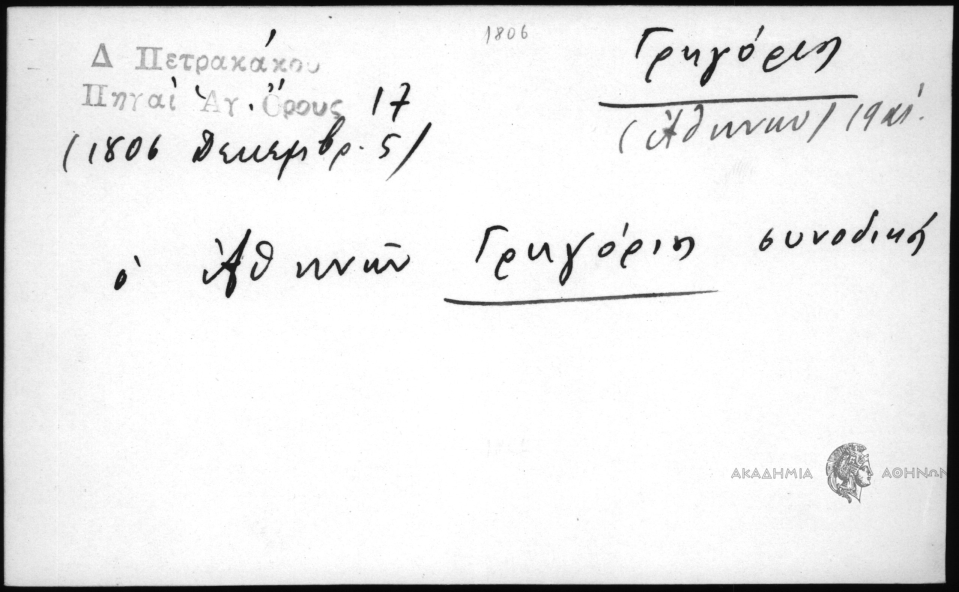 1806
Δ Πετρακάκου
Πηγαὶ Ἁγ. Ὄρους 17
(1806 Δεκεμβρ. 5)
Γρηγόριος
(Ἀθηνῶν) 19 αἰ.
ὁ Ἀθηνῶν Γρηγόριος συνοδικῇ
ΑΚΑΔΗΜΙΑ ΑΘΗΝΩΝ